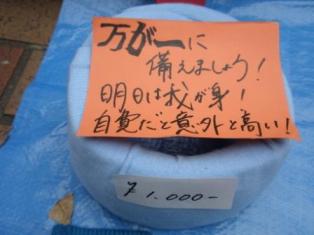 万が一に
備えましょう!
明日は我が身!
自費だと意外と高い!
¥1.000-